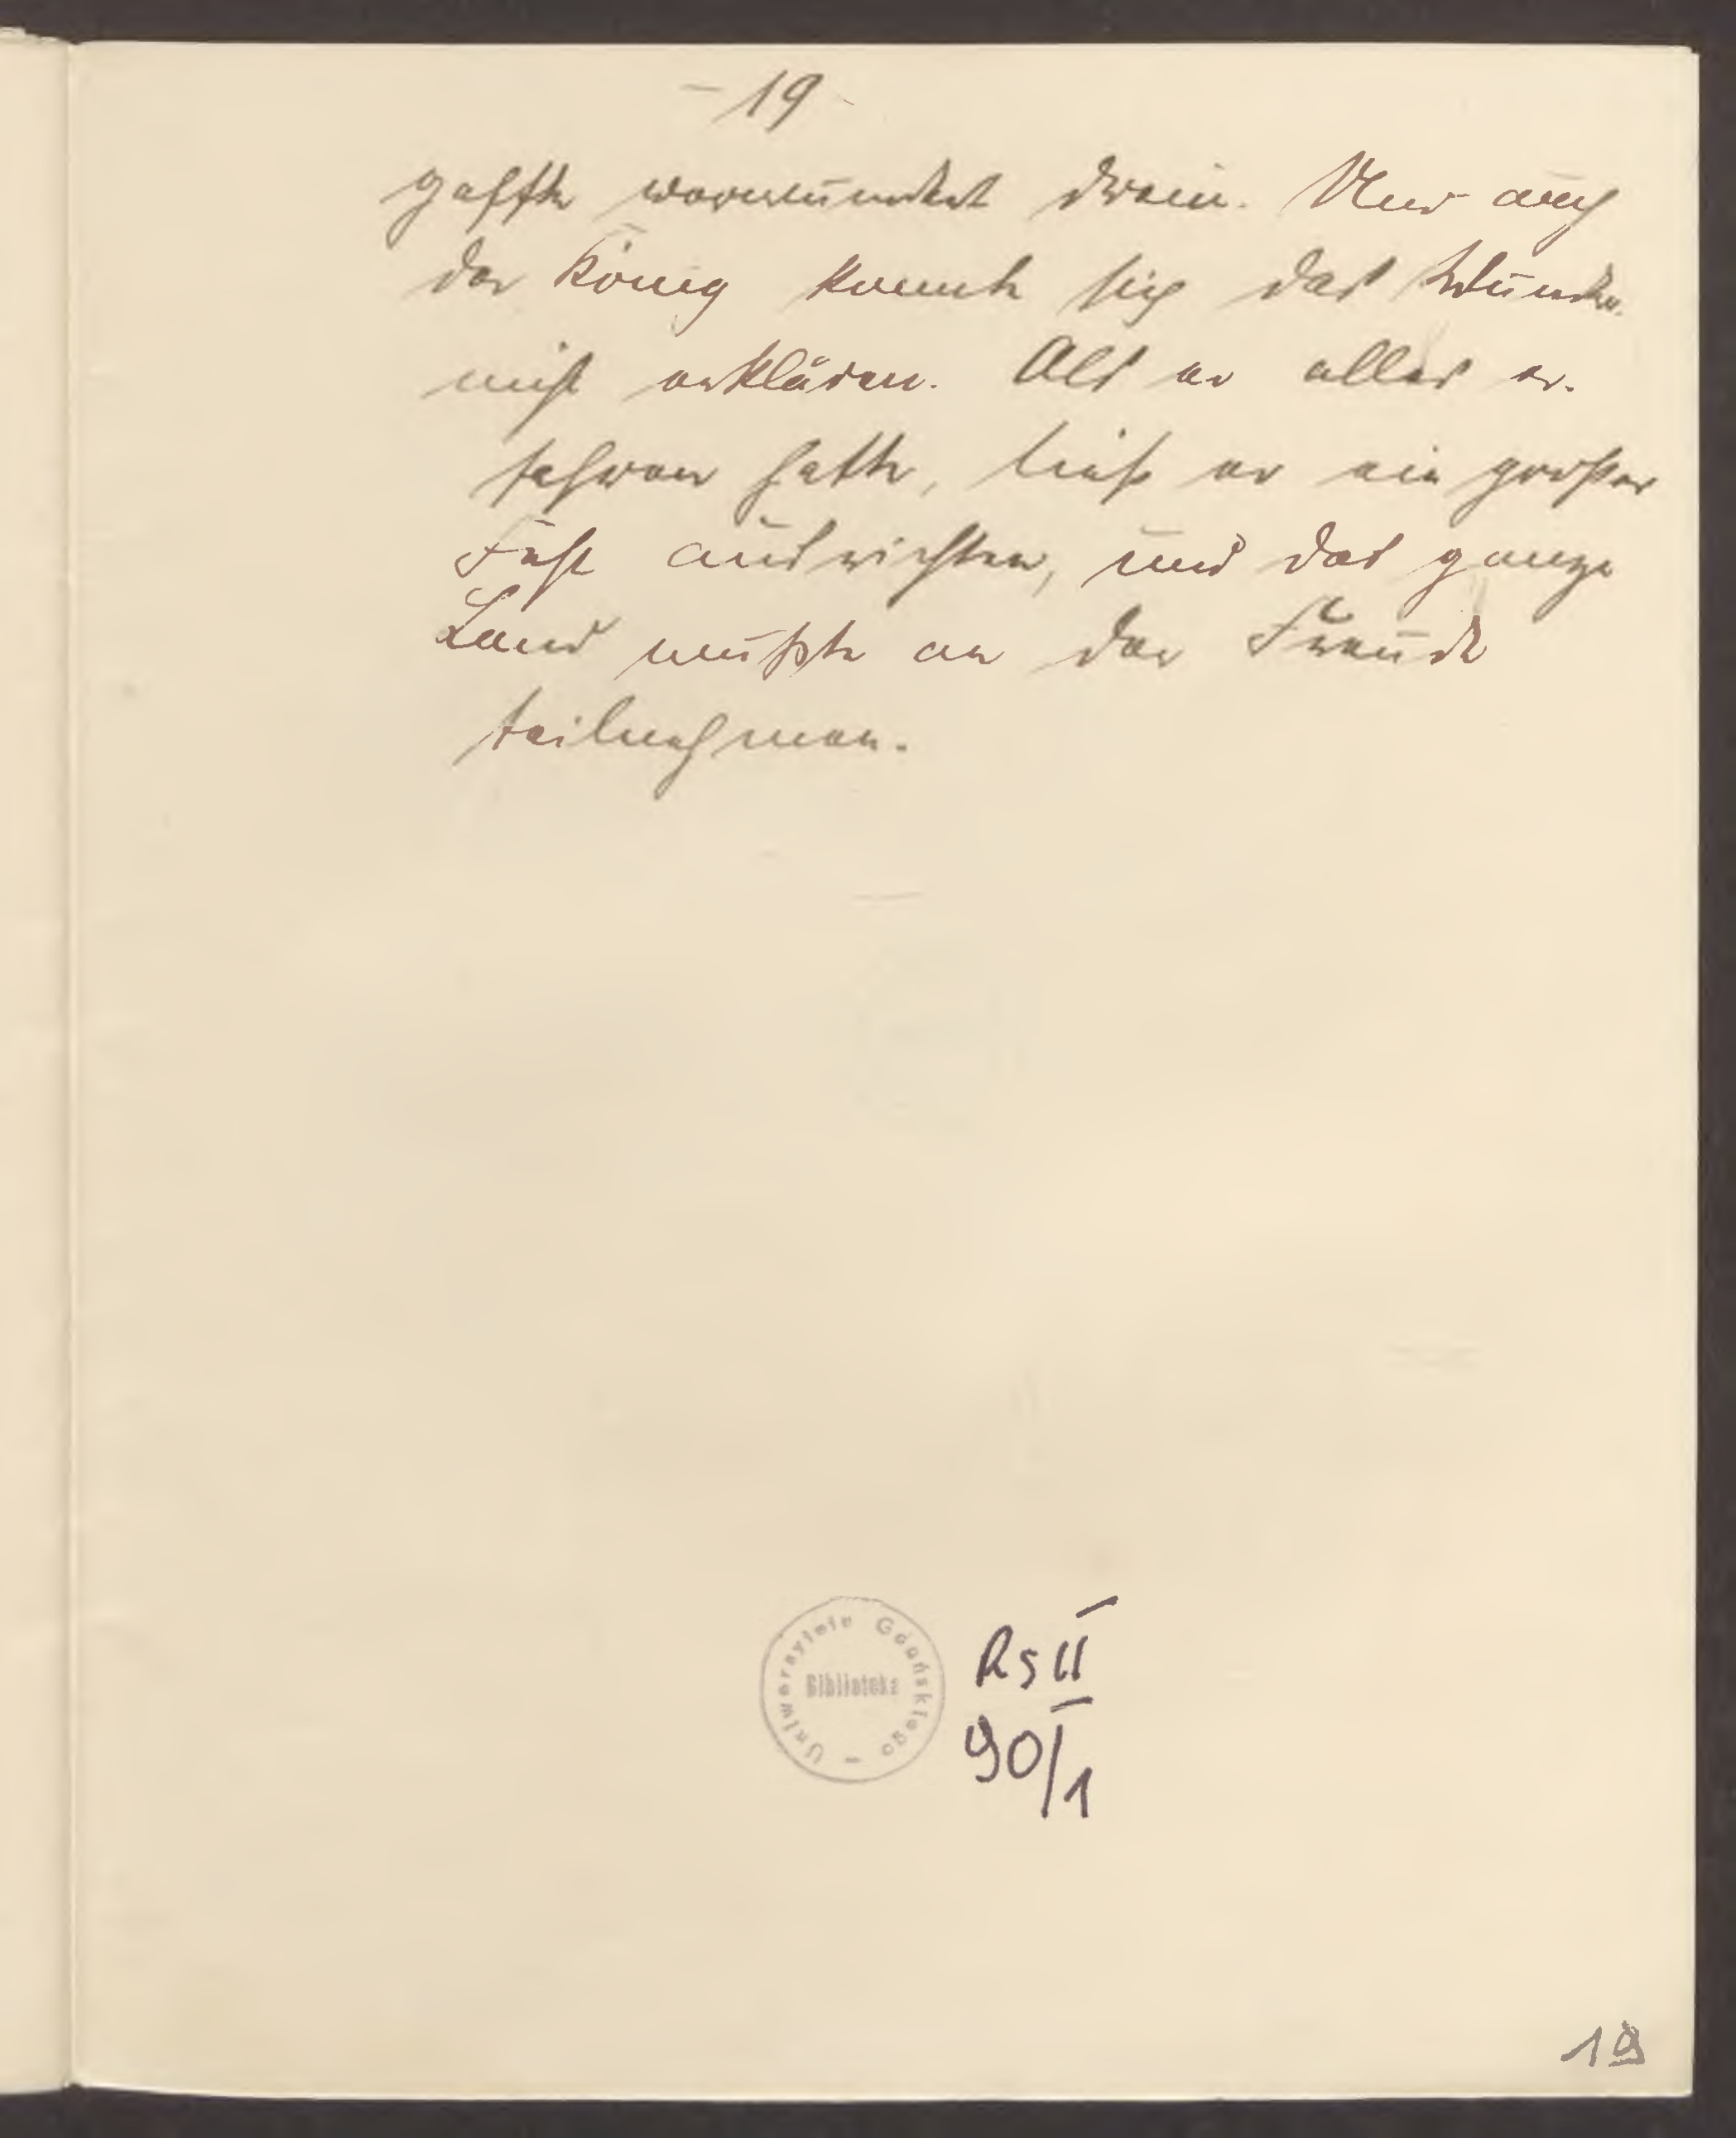 - 19 -
gaffte verwundert drein. Und auch
der König konnte sich das Wunder
nicht erklären. Als er alles er-
fahren hatte, ließ er ein großes
Fest ausrichten, und das ganze
Land mußte an der Freude
teilnehmen.
Biblioteka
Uniwersytetu Gdańskiego -
Rs II
90/1
19